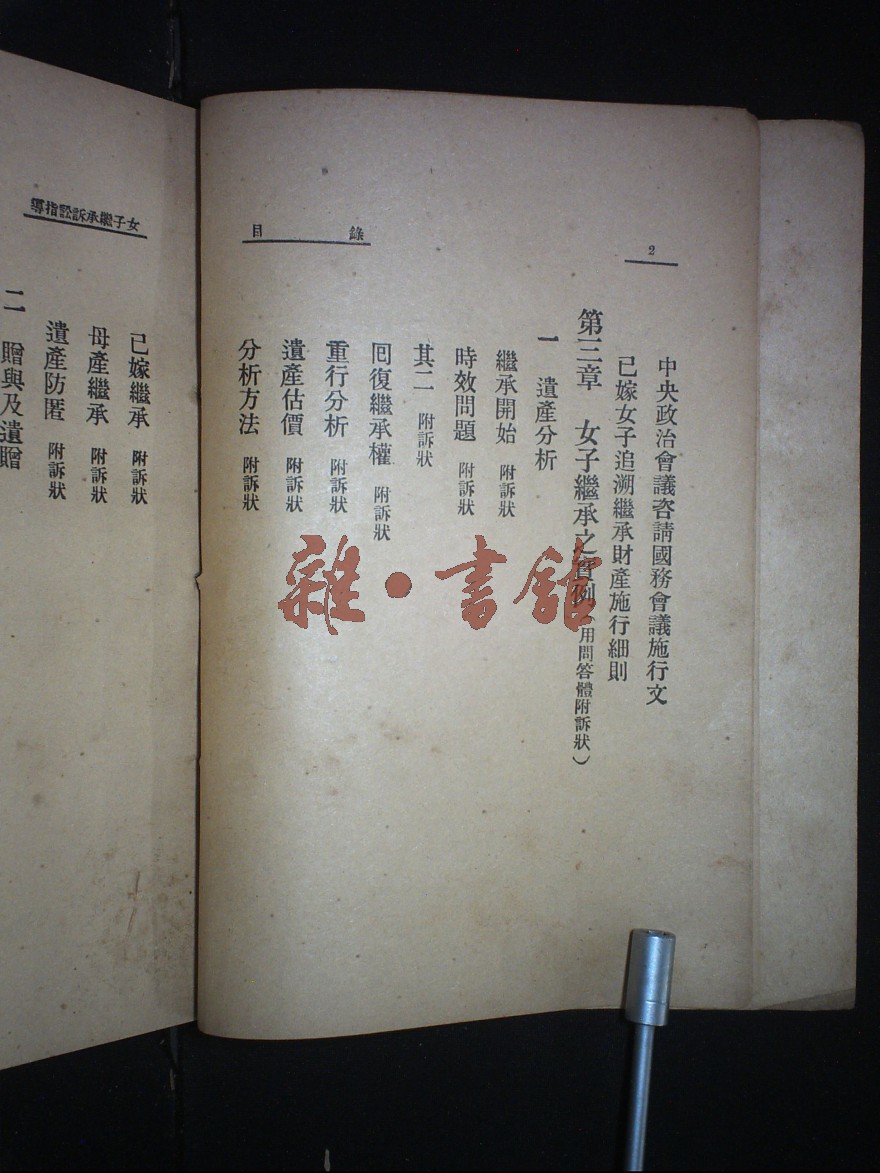 2
錄目
中央政治會議咨請國務會議施行文
已嫁女子追溯繼承財產施行細則
第三章 女子繼承之實例(用問答體附訴狀)
一 遺產分析
繼承開始 附訴狀
時效問題 附訴狀
其二 附訴狀
囘復繼承權 附訴狀
重行分析 附訴狀
遺產估價 附訴狀
分析方法 附訴狀
女子繼承訴訟指導
已嫁繼承 附訴狀
母產繼承 附訴狀
遺產防匿 附訴狀
二 贈與及遺贈
雜·書館